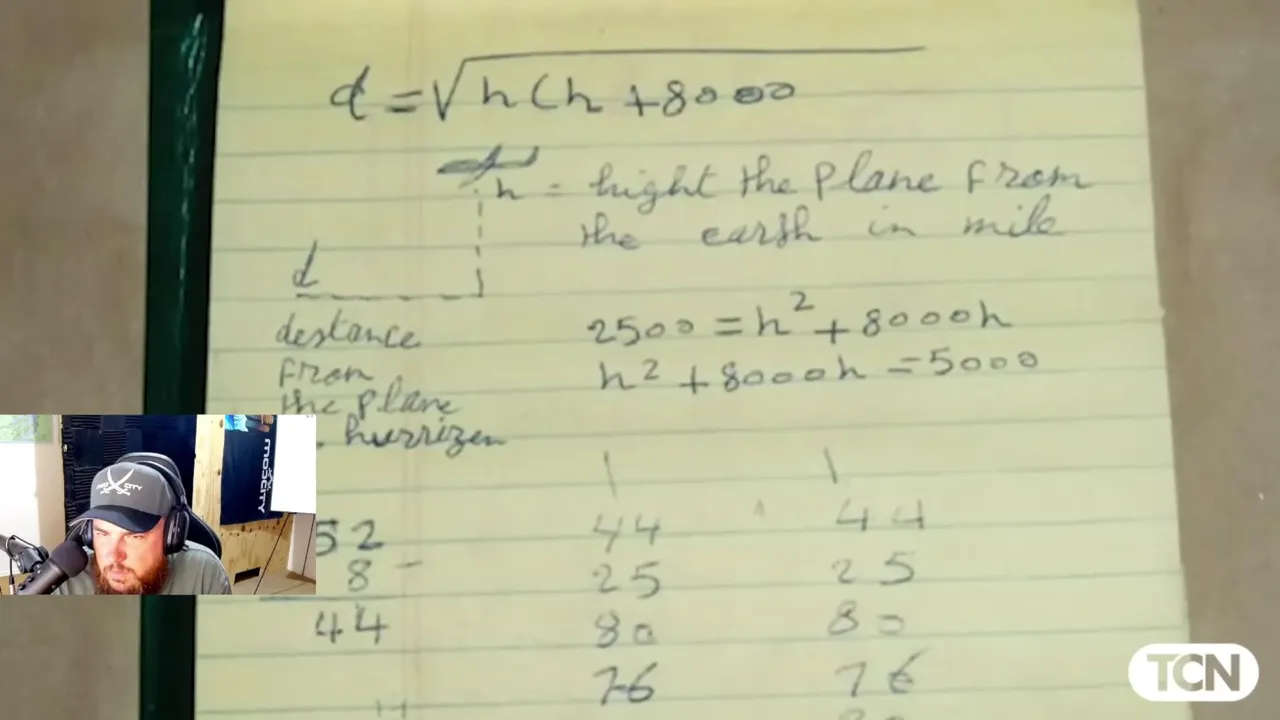 d = √h(h +8000
h = hight the plane from
the earth in mile
d
destance
from
the plane
hurrizen
2500 = h² + 8000h
h² + 8000h = 5000
52
8 -
44
44
25
80
76
44
25
80
76
CITY
MODCITY
TCN